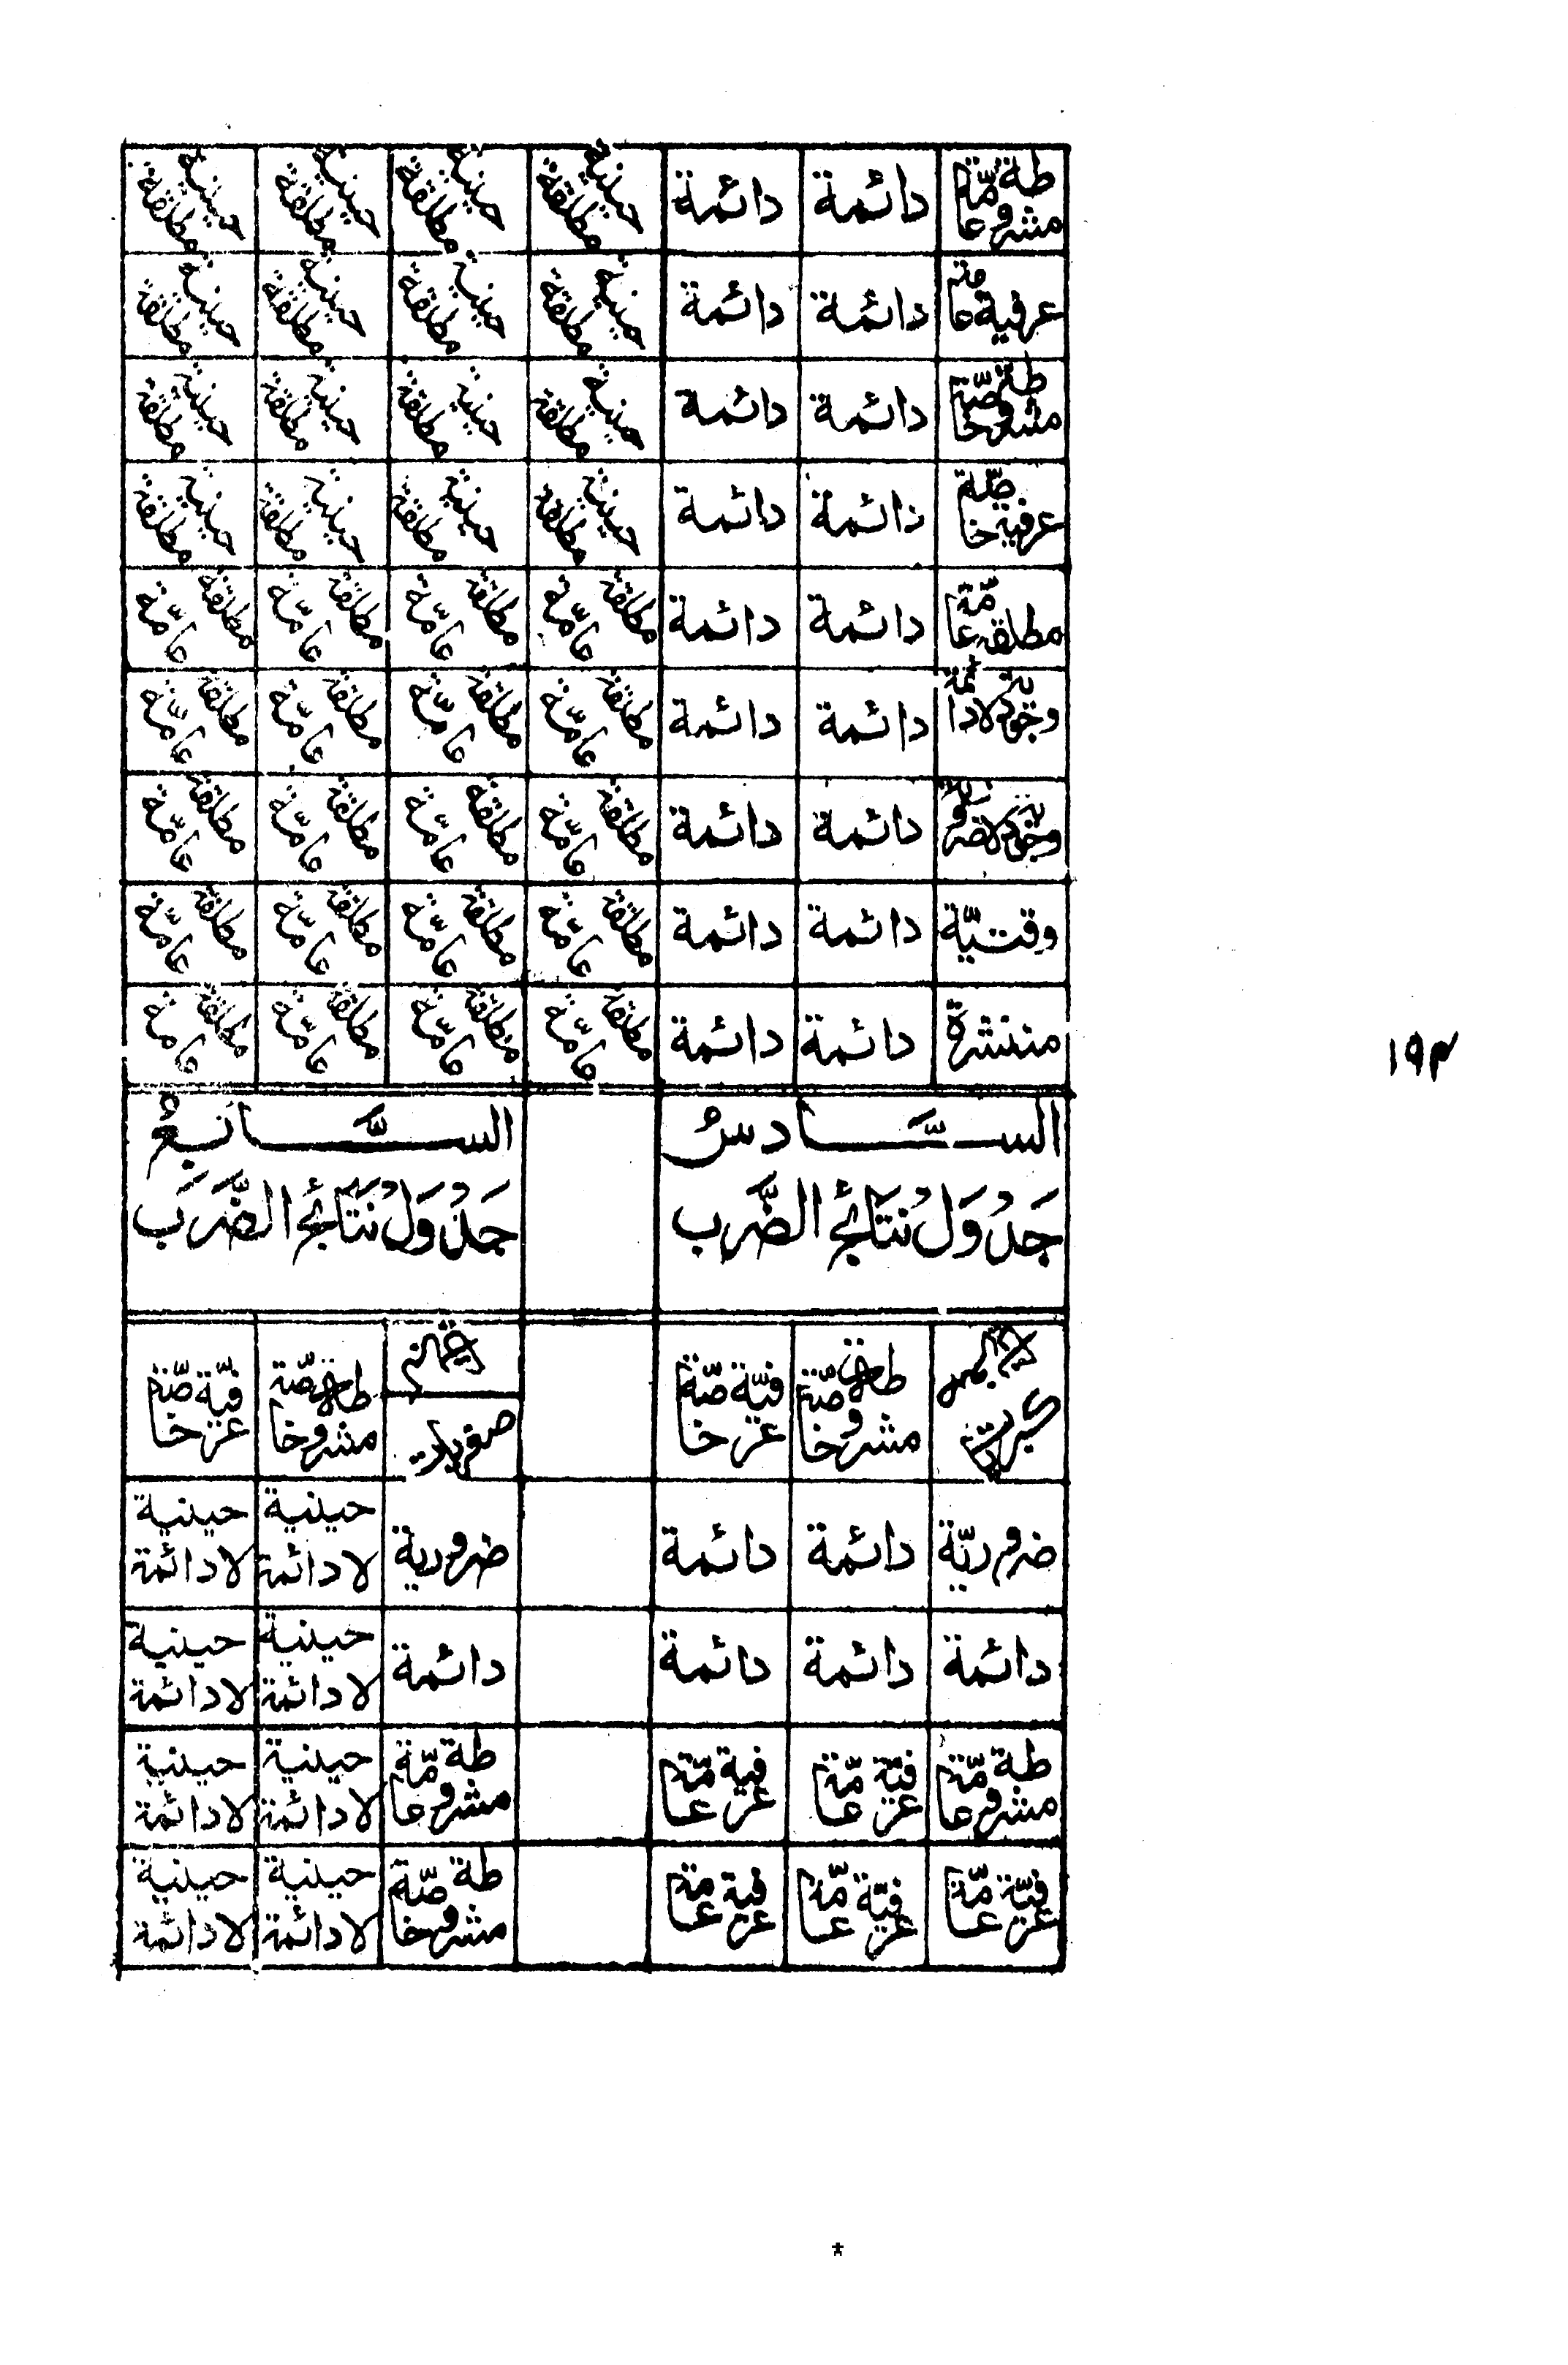 مشروطة عامّة دائمة دائمة حينية مطلقة حينية مطلقة حينية مطلقة حينية مطلقة
عرفية عامة دائمة دائمة حينية مطلقة حينية مطلقة حينية مطلقة حينية مطلقة
مشروطة خاصّة دائمة دائمة حينية مطلقة حينية مطلقة حينية مطلقة حينية مطلقة
عرفية خاصّة دائمة دائمة حينية مطلقة حينية مطلقة حينية مطلقة حينية مطلقة
مطلقه عامّة دائمة دائمة مطلقة عامّة مطلقة عامّة مطلقة عامّة مطلقة عامّة
وجودية لادائمة دائمة دائمة مطلقة عامّة مطلقة عامّة مطلقة عامّة مطلقة عامّة
وجودية لاضرورية دائمة دائمة مطلقة عامّة مطلقة عامّة مطلقة عامّة مطلقة عامّة
وقتيّة دائمة دائمة مطلقة عامّة مطلقة عامّة مطلقة عامّة مطلقة عامّة
منتشرة دائمة دائمة مطلقة عامّة مطلقة عامّة مطلقة عامّة مطلقة عامة
١٩٣
السَّادسُ
جَدْوَلُ نتَائج الضَّرب
السَّابعُ
جَدْوَلُ نَتَائج الضَّرَبَ
مشروطة خاصّة عرفيّة خاصّة
مشروطة خاصّة عرفيّة خاصّة
صغريات
ضروريّة دائمة دائمة
دائمة دائمة دائمة
مشروطة عامّة عرفيّة عامّة عرفية عامّة
عرفيّة عامّة عرفيّة عامّة عرفية عامة
ضرورية حينية لادائمة حينية لادائمة
دائمة حينية لادائمة حينية لادائمة
مشروطة عامّة حينية لادائمة حينية لادائمة
مشروطة خاصّة حينية لادائمة حينية لادائمة
*